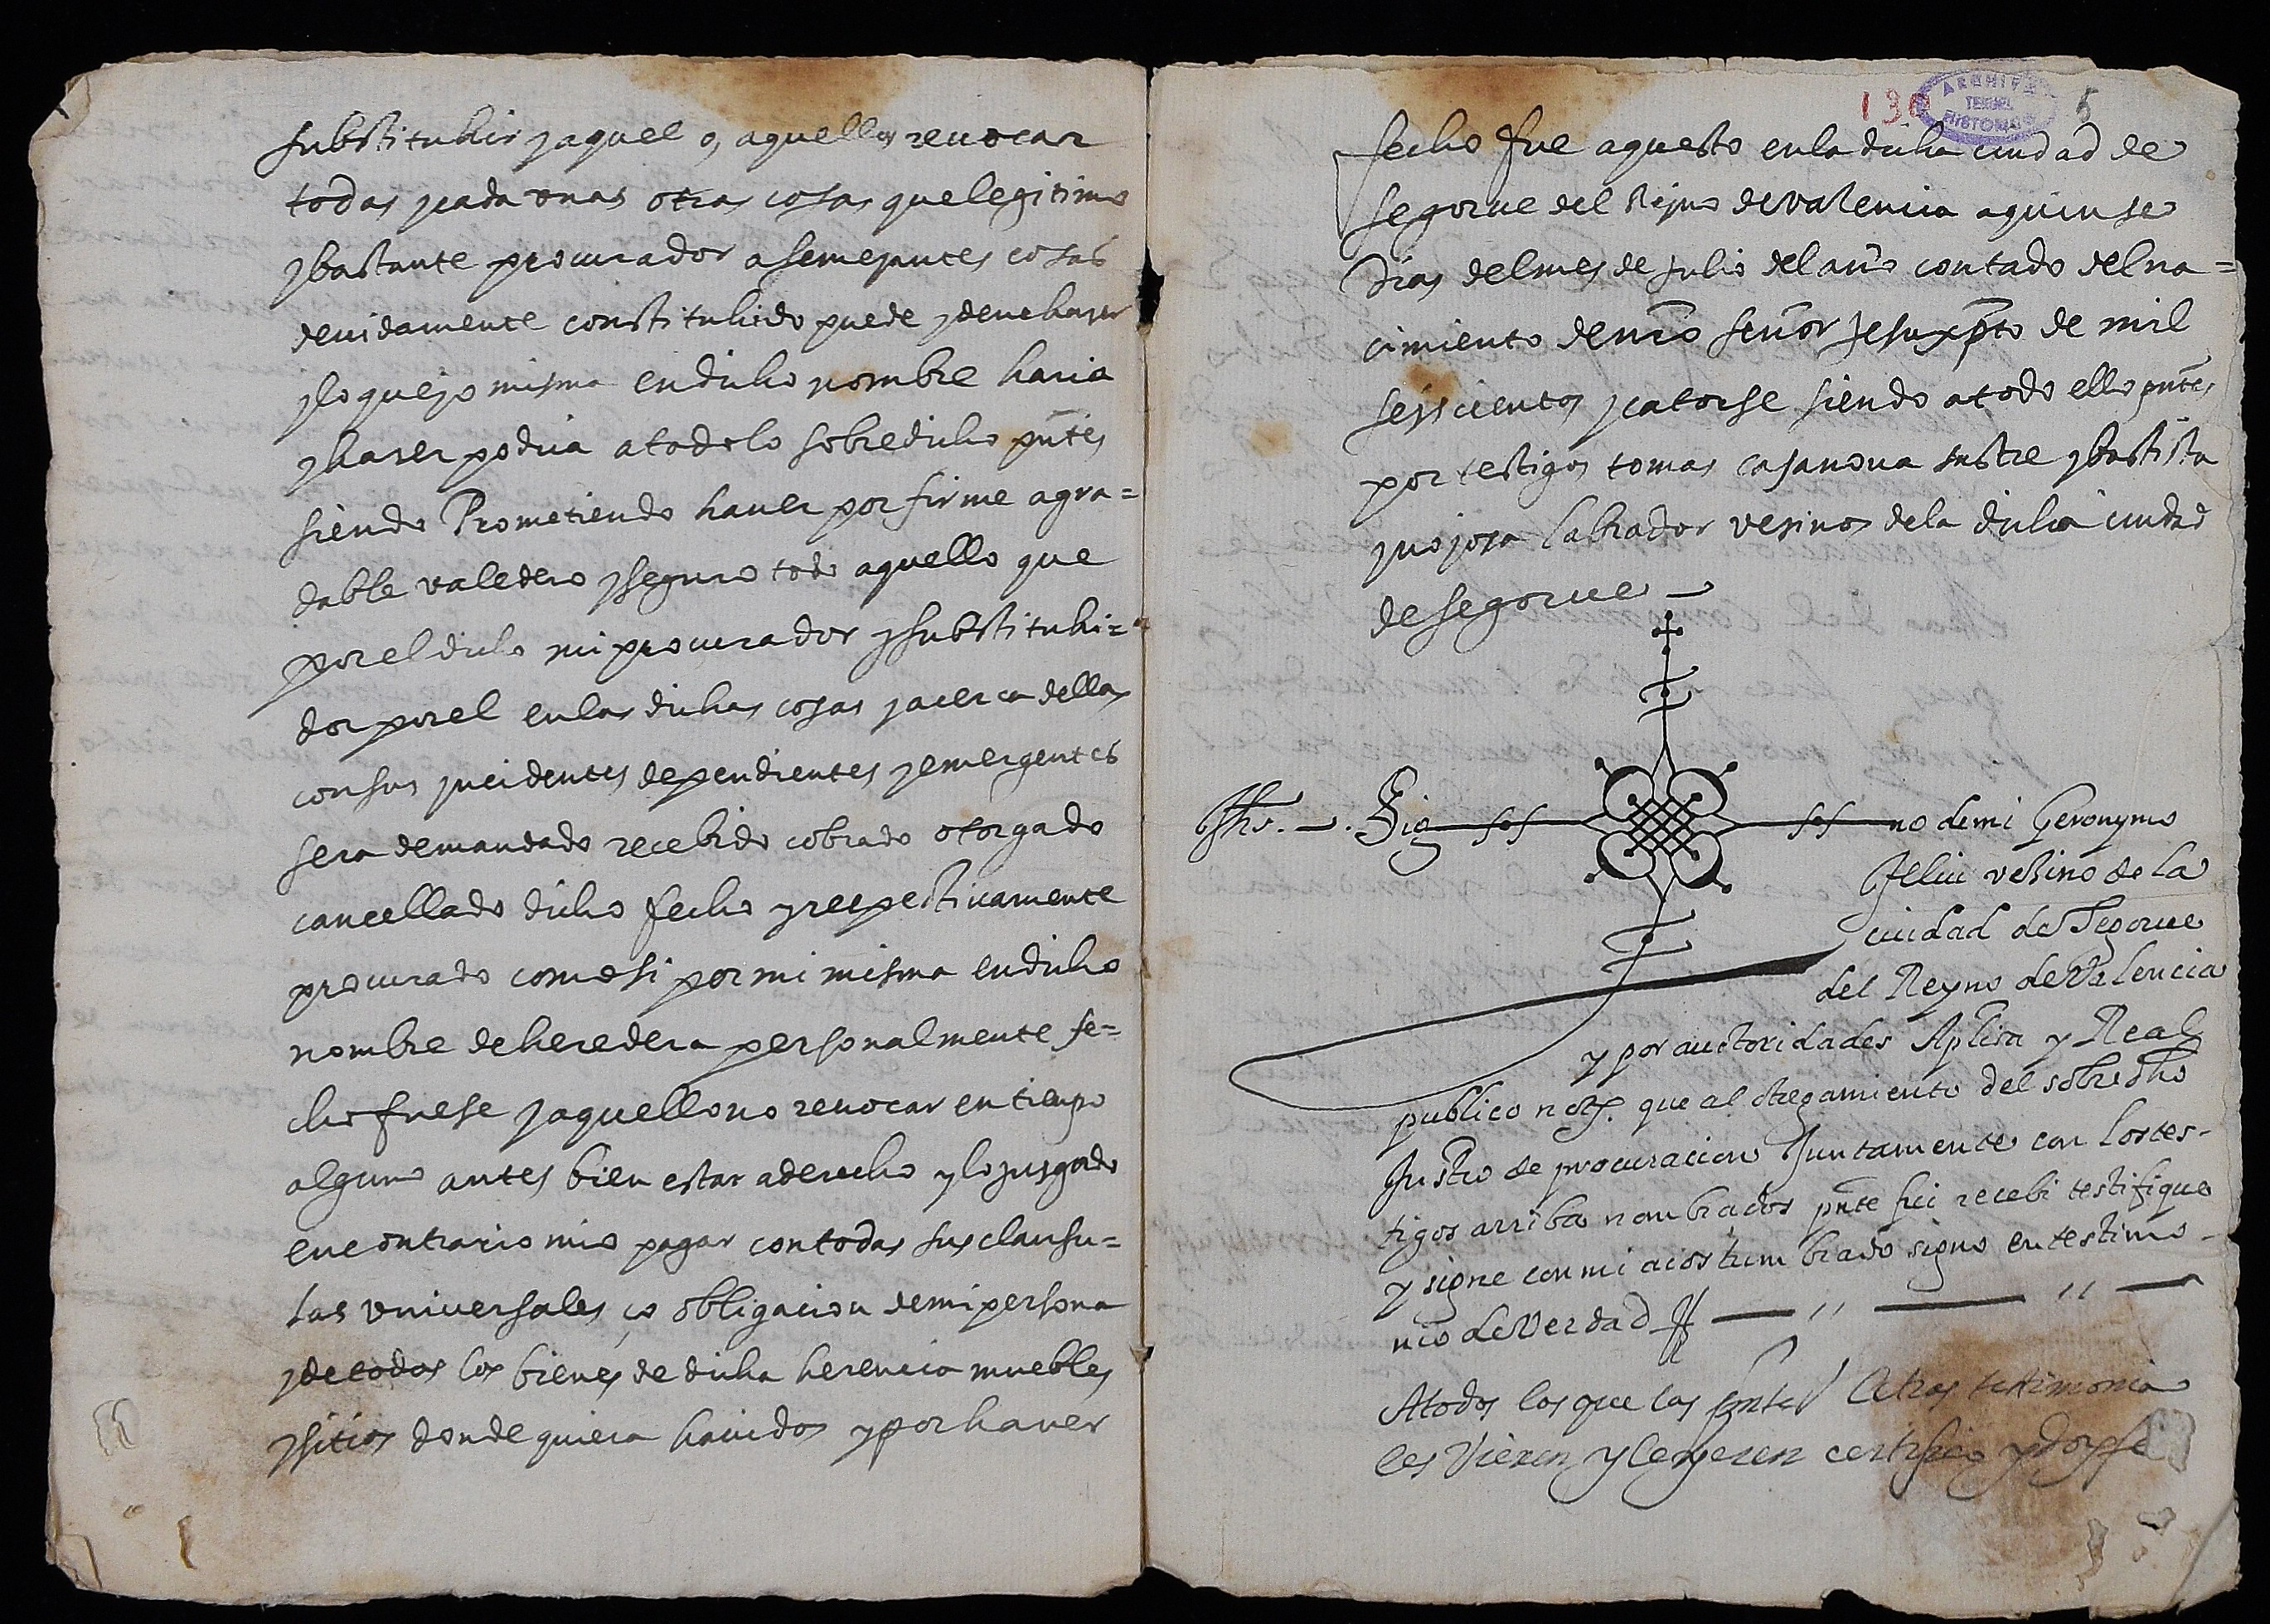 substituhir y aquel o, aquellos reuocar
todas y cada vnas otras cosas que legitimo
y bastante procurador a semejantes cosas
deuidamente constituhido puede y deue haser
y lo que yo misma en dicho nombre haria
y haser podria a todo lo sobredicho pntes
siendo Prometiendo hauer por firme agra=
dable valedero y seguro todo aquello que
por el dicho mi procurador y substituhi=
dor por el en las dichas cosas y acerca dellas
con sus yncidentes dependientes y emergentes
sera demandado recebido cobrado otorgado
cancellado dicho fecho y respectiuamente
procurado como si por mi misma en dicho
nombre de heredera personalmente fe=
cho fuese y aquello no reuocar en tiempo
alguno antes bien estar a derecho y lo jusgado
en contrario mio pagar con todas sus clausu=
las vniuersales so obligacion de mi persona
y de todos los bienes de dicha herencia muebles
y sitios donde quiera hauidos y por hauer
130 6
ARCHIVO
TERUEL
HISTORICO
fecho fue aquesto en la dicha ciudad de
segorue del Reyno de valencia a quinse
dias del mes de julio del año contado del na=
cimiento de nro señor jesuxpto de mil
seyscientos y catorse siendo a todo ello pntes
por testigos tomas casanoua sastre y bastista
ynojosa labrador vesinos de la dicha ciudad
de segorue
Jhs. Sig no de mi Geronymo
Felliu vesino de la
ciudad de Segorue
del Reyno de Valencia
y por auctoridades Aplica y Real
publico not. que al otregamiento del sobredho
Instro de procuracion Juntamente con los tes-
tigos arriba nombrados pnte fui recebi testifique
y signe con mi acostumbrado signo en testimo-
nio de Verdad
A todos los que las pntes letras testimonia
les Vieren y leyeren certifico y doy fe